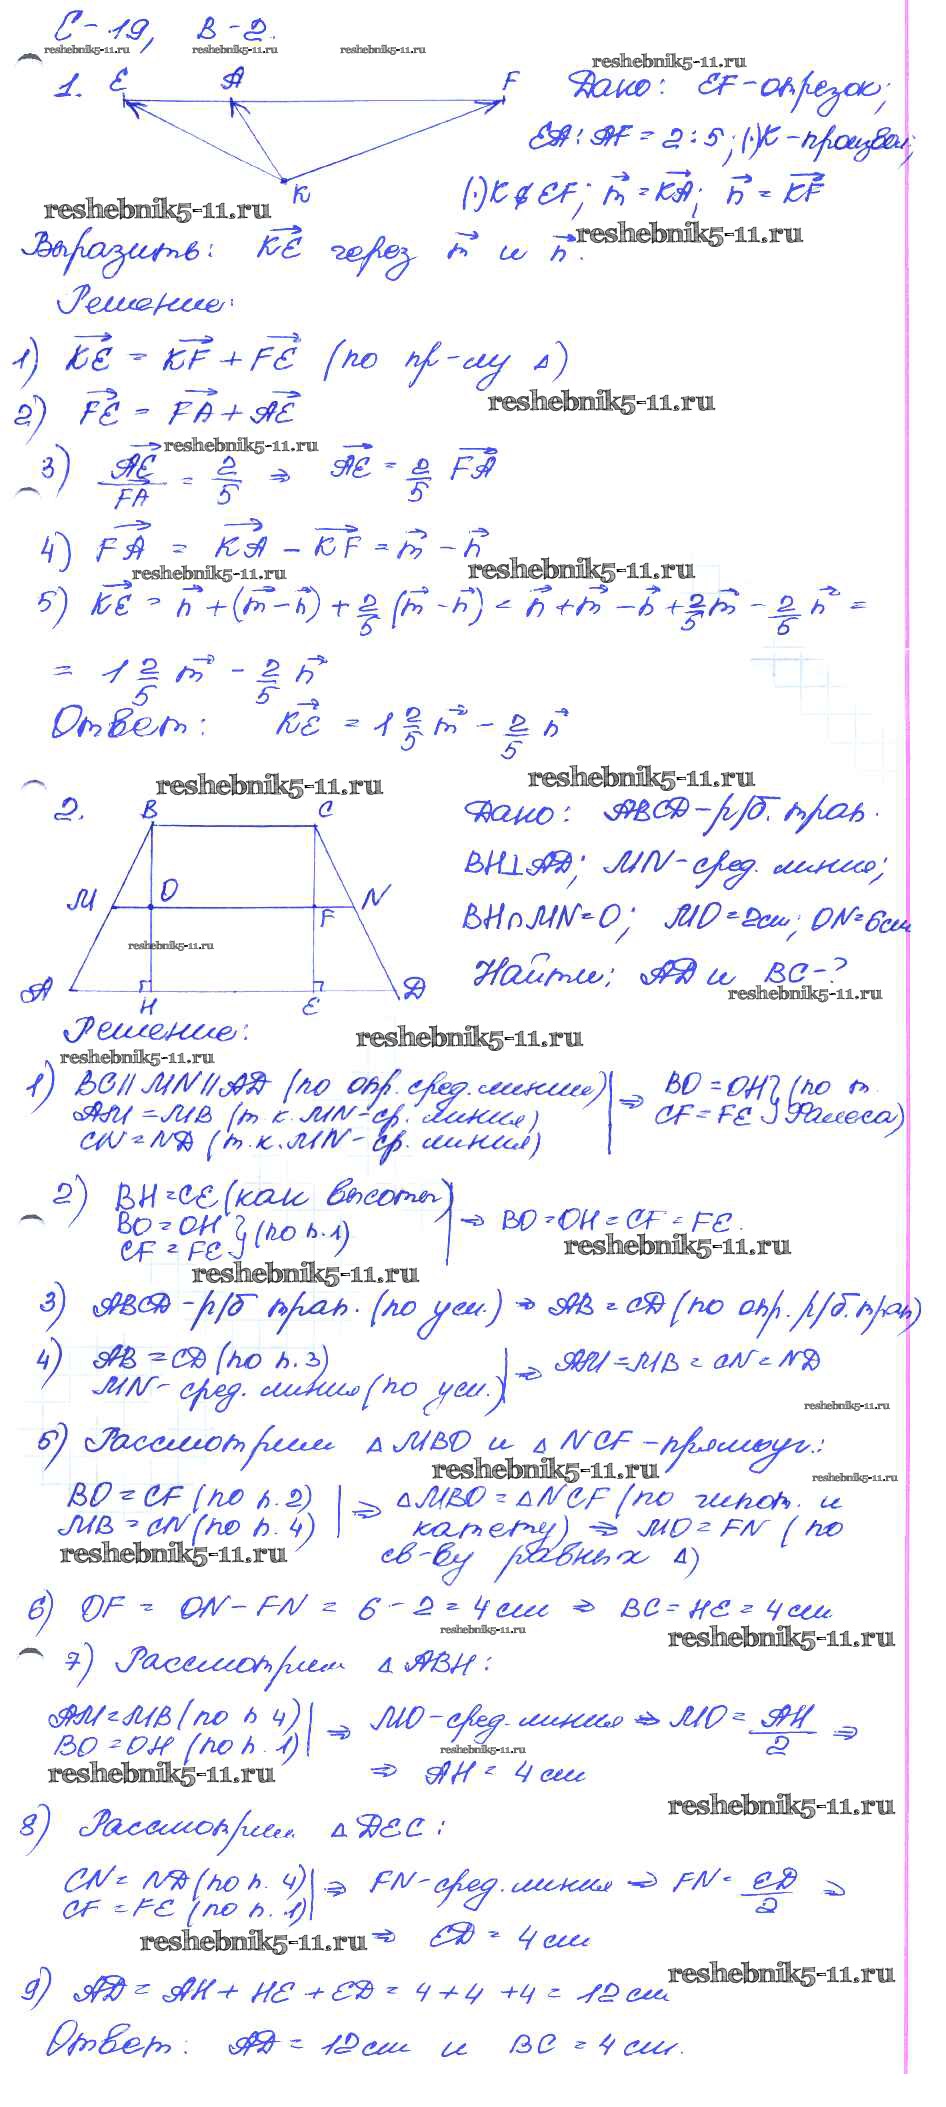 С-19, В-2.
reshebnik5-11.ru reshebnik5-11.ru reshebnik5-11.ru
reshebnik5-11.ru
1. E A F K
Дано: EF-отрезок;
EA:AF=2:5; (·)K-произвол;
(·)K∉EF; m⃗=KA⃗; n⃗=KF⃗
reshebnik5-11.ru
reshebnik5-11.ru
Выразить: KE⃗ через m⃗ и n⃗.
Решение:
1) KE⃗ = KF⃗ + FE⃗ (по пр-лу Δ)
2) FE⃗ = FA⃗ + AE⃗
reshebnik5-11.ru
reshebnik5-11.ru
3) AE⃗/FA⃗ = 2/5 ⇒ AE⃗ = 2/5 FA⃗
4) FA⃗ = KA⃗ - KF⃗ = m⃗ - n⃗
reshebnik5-11.ru reshebnik5-11.ru
5) KE⃗ = n⃗ + (m⃗ - n⃗) + 2/5 (m⃗ - n⃗) = n⃗ + m⃗ - n⃗ + 2/5 m⃗ - 2/5 n⃗ =
= 1 2/5 m⃗ - 2/5 n⃗
Ответ: KE⃗ = 1 2/5 m⃗ - 2/5 n⃗
reshebnik5-11.ru reshebnik5-11.ru
2. B C M O F N A H E D
reshebnik5-11.ru
Дано: ABCD-р/б. трап.
BH⊥AD; MN-сред. линия;
BH∩MN=O; MO=2см; ON=6см
Найти: AD и BC-?
reshebnik5-11.ru
Решение:
reshebnik5-11.ru
reshebnik5-11.ru
1) BC||MN||AD (по опр. сред. линии) | ⇒ BO=OH } (по т.
AM=MB (т.к. MN-ср. линия) | CF=FE } Фалеса)
CN=ND (т.к. MN-ср. линия)
2) BH=CE (как высоты)
BO=OH } (по п.1) | ⇒ BO=OH=CF=FE.
CF=FE }
reshebnik5-11.ru
reshebnik5-11.ru
3) ABCD-р/б трап. (по усл.) ⇒ AB=CD (по опр. р/б. трап)
4) AB=CD (по п.3) | ⇒ AM=MB=CN=ND
MN-сред. линия (по усл.)
reshebnik5-11.ru
5) Рассмотрим ΔMBO и ΔNCF-прямоуг.:
reshebnik5-11.ru reshebnik5-11.ru
BO=CF (по п.2) | ⇒ ΔMBO=ΔNCF (по гипот. и
MB=CN (по п.4) | катету) ⇒ MO=FN (по
reshebnik5-11.ru св-ву равных Δ)
6) OF = ON-FN = 6-2=4см ⇒ BC=HE=4см
reshebnik5-11.ru reshebnik5-11.ru
7) Рассмотрим ΔABH:
AM=MB (по п 4) | ⇒ MO-сред. линия ⇒ MO = AH/2 ⇒
BO=OH (по п.1) | reshebnik5-11.ru
reshebnik5-11.ru ⇒ AH=4см
reshebnik5-11.ru
8) Рассмотрим ΔDEC:
CN=ND (по п. 4) | ⇒ FN-сред. линия ⇒ FN = ED/2 ⇒
CF=FE (по п.1)
reshebnik5-11.ru ⇒ ED=4см
reshebnik5-11.ru
9) AD = AH + HE + ED = 4+4+4=12см
Ответ: AD=12см и BC=4см.